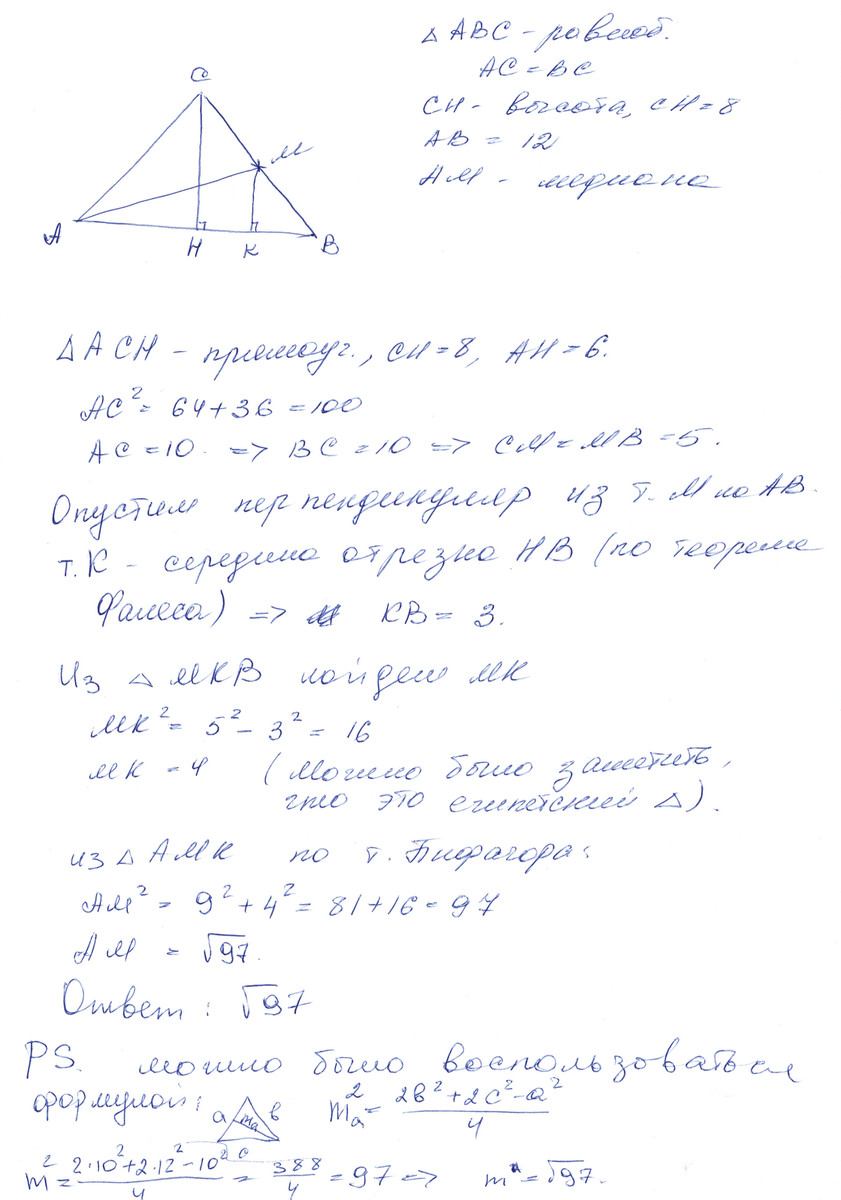 △ ABC - равноб.
AC = BC
CH - высота, CH = 8
AB = 12
AM - медиана
C
M
A
H
K
B
△ ACH - прямоуг., CH = 8, AH = 6.
AC² = 64 + 36 = 100
AC = 10. => BC = 10 => CM = MB = 5.
Опустим перпендикуляр из т. M на AB.
т. K - середина отрезка HB (по теореме
Фалеса) => KB = 3.
Из △ MKB найдем MK
MK² = 5² - 3² = 16
MK = 4 (Можно было заметить,
что это египетский △).
из △ AMK по т. Пифагора:
AM² = 9² + 4² = 81 + 16 = 97
AM = √97.
Ответ: √97
PS. можно было воспользоваться
формулой: a mₐ b c mₐ² = (2b² + 2c² - a²)/4
m² = (2·10² + 2·12² - 10²)/4 = 388/4 = 97 => m = √97.